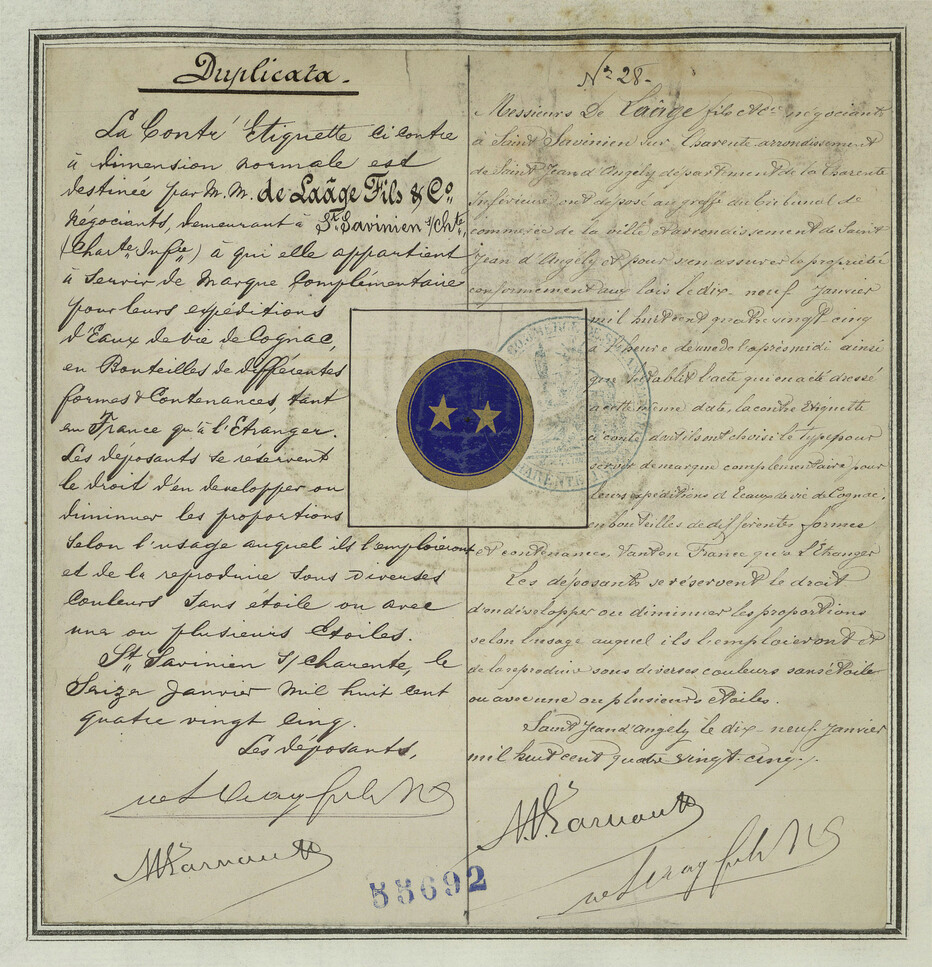 Duplicata.
La Contr' Etiquette ci contre
à dimension normale est
destinée par M.M. de Laâge Fils & Co.
négociants, demeurant à St. Savinien s/Chte,
(Charte Infre) à qui elle appartient
à servir de marque complémentaire
pour leurs expéditions
d'Eaux de vie de Cognac,
en Bouteilles de différentes
formes & Contenances, tant
en France qu'à l'Etranger.
Les déposants se reservent
le droit d'en developper ou
diminuer les proportions
selon l'usage auquel ils l'emploieront
et de la reproduire sous diverses
Couleurs sans étoile ou avec
une ou plusieurs Etoiles.
St. Savinien s/Charente, le
Seize Janvier mil huit cent
quatre vingt cinq.
Les déposants,
55692
No 28.
Messieurs De Laâge fils et Cie négociants
à Saint Savinien sur Charente arrondissement
de Saint Jean d'Angely département de la Charente
Inférieure ont déposé au greffe du tribunal de
commerce de la ville et arrondissement de Saint
Jean d'Angély et pour s'en assurer la propriété
conformément aux lois le dix-neuf Janvier
mil huit cent quatre vingt cinq
à l'heure de une de l'après midi ainsi
que l'acte qui en a été dressé
à cette même date, la contre Etiquette
ci contre dont ils ont choisi le type pour
servir de marque complémentaire pour
leurs expéditions d'Eaux de vie de Cognac,
en bouteilles de différentes forme
et contenance tant en France qu'à l'Etranger
Les déposants se réservent le droit
d'en développer ou diminuer les proportions
selon l'usage auquel ils l'emploieront et
de la reproduire sous diverses couleurs sans étoile
ou avec une ou plusieurs étoiles.
Saint Jean d'Angely le dix-neuf Janvier
mil huit cent quatre vingt-cinq.